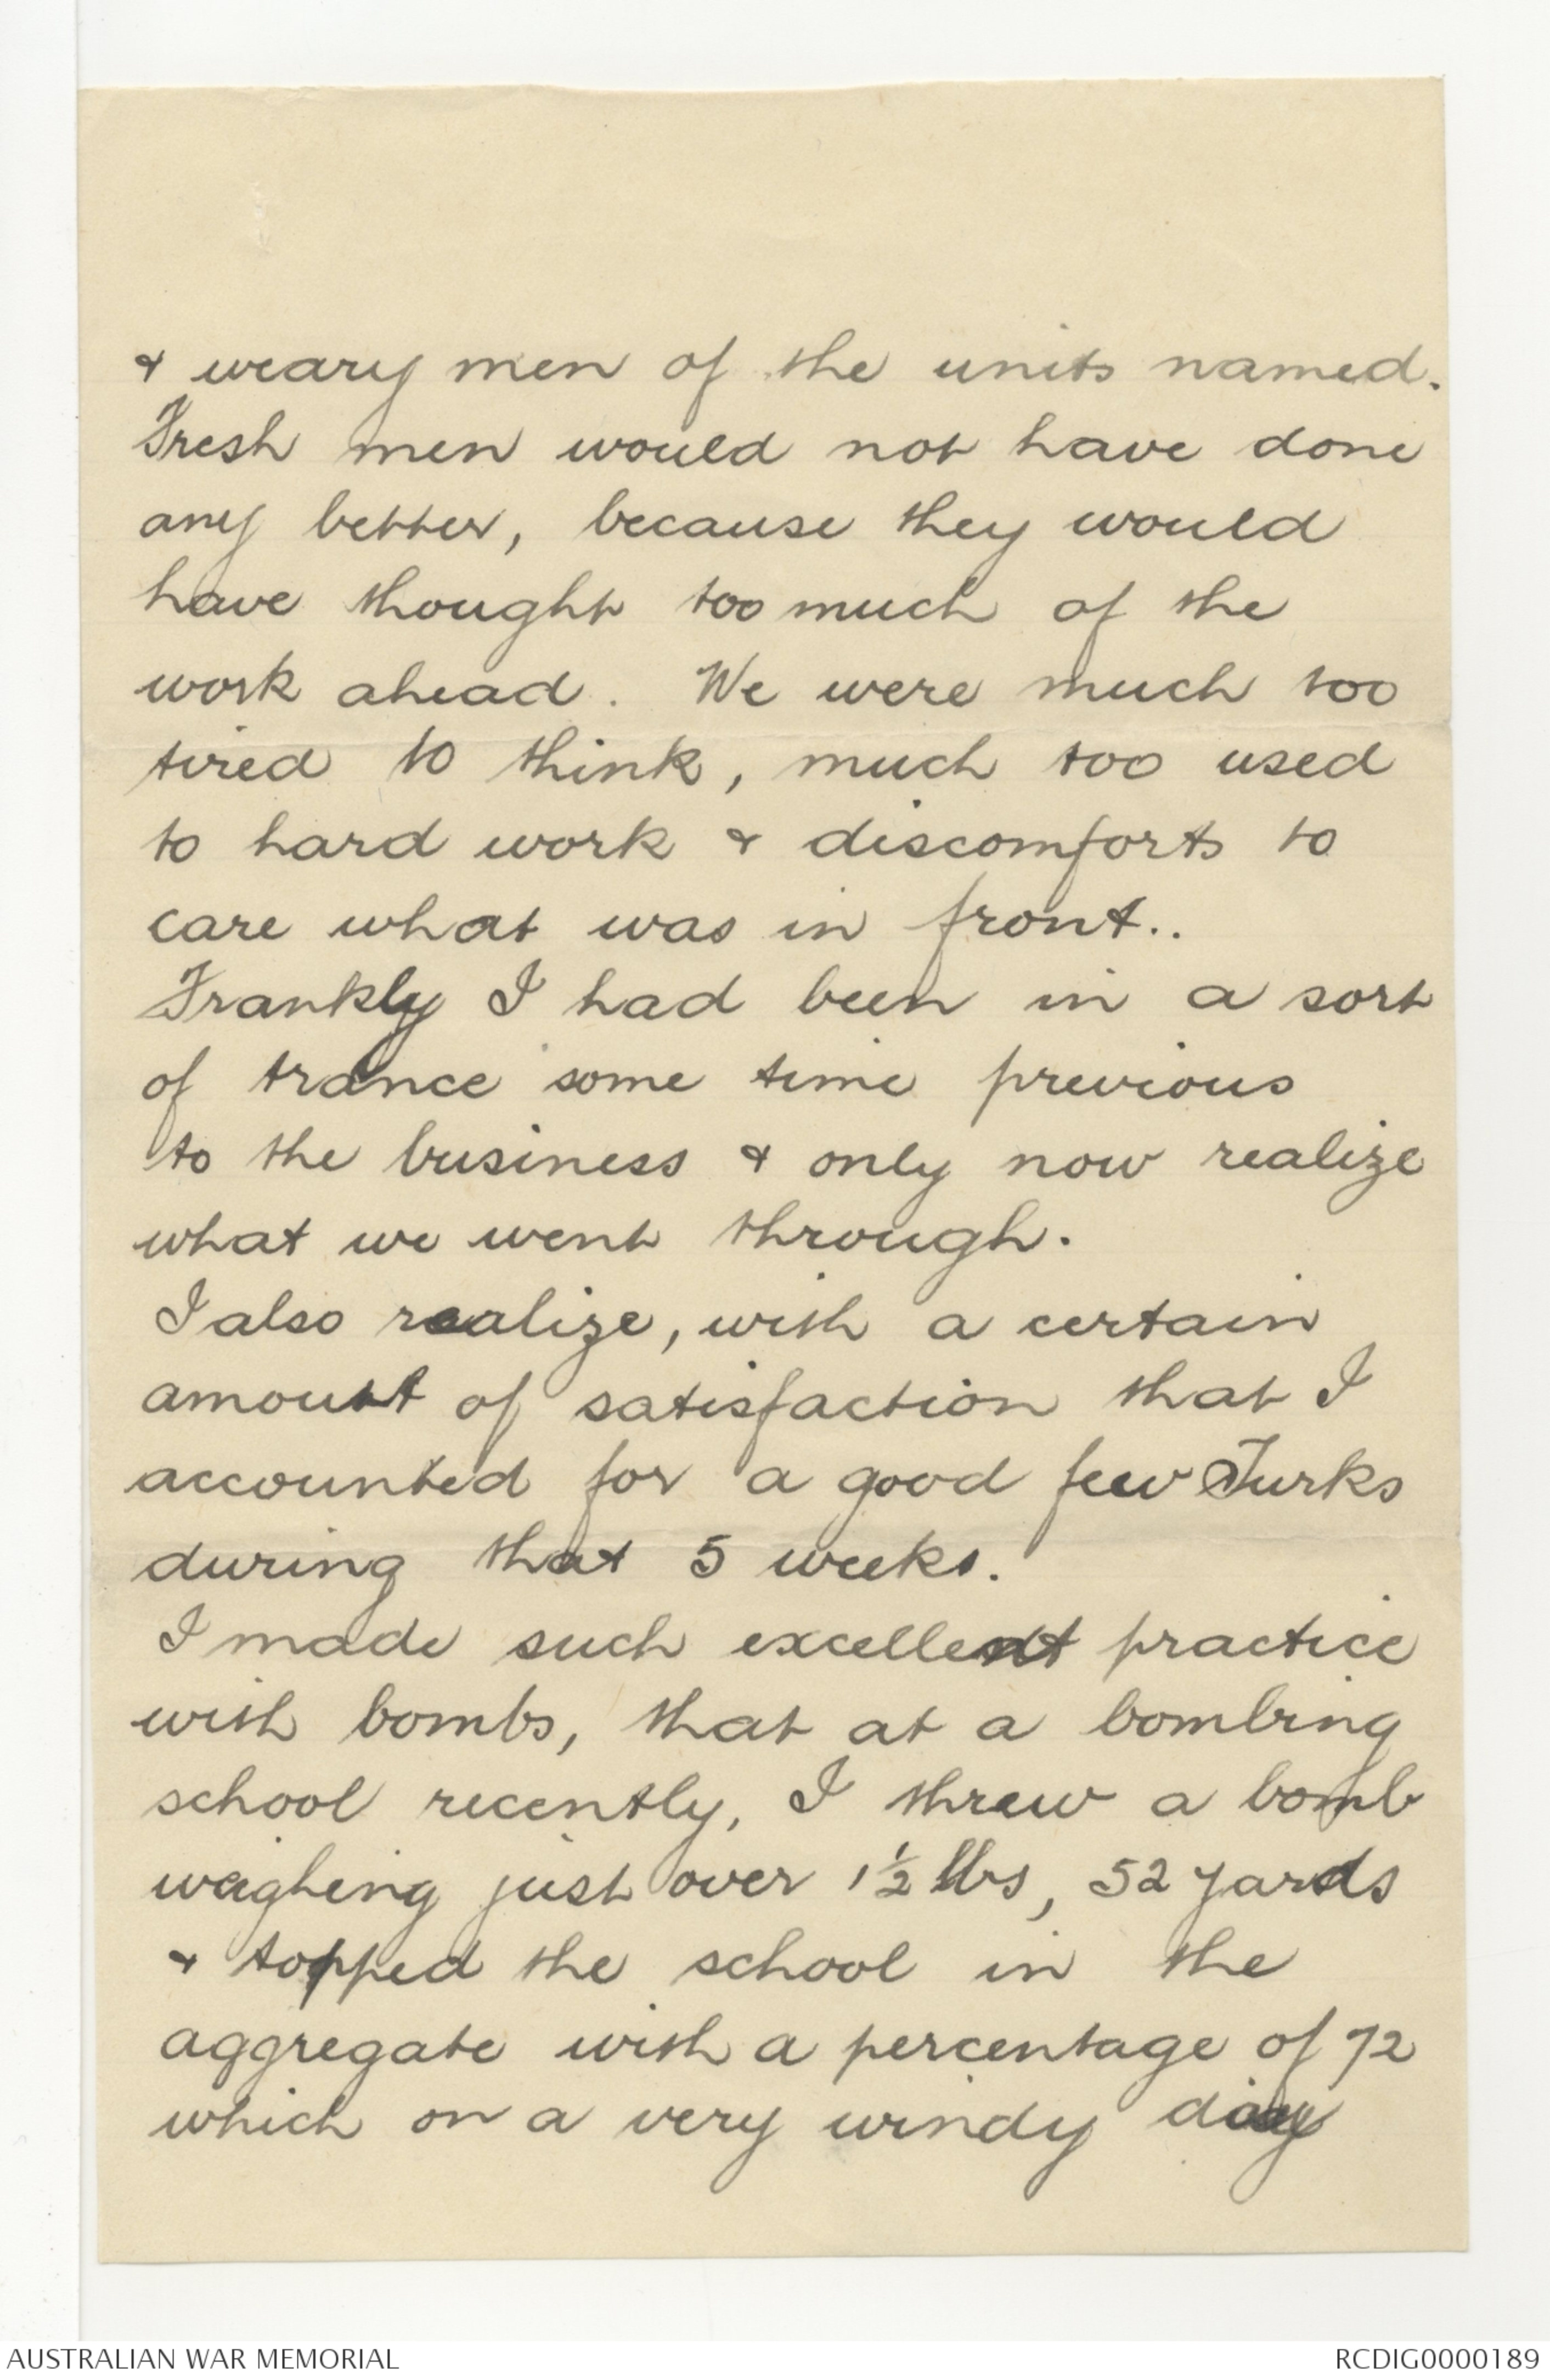 & weary men of the units named.
Fresh men would not have done
any better, because they would
have thought too much of the
work ahead. We were much too
tired to think, much too used
to hard work & discomforts to
care what was in front..
Frankly I had been in a sort
of trance some time previous
to the business & only now realize
what we went through.
I also realize, with a certain
amount of satisfaction that I
accounted for a good few Turks
during that 5 weeks.
I made such excellent practice
with bombs, that at a bombing
school recently, I threw a bomb
weighing just over 1½ lbs, 52 yards
& topped the school in the
aggregate with a percentage of 72
which on a very windy day
AUSTRALIAN WAR MEMORIAL
RCDIG0000189